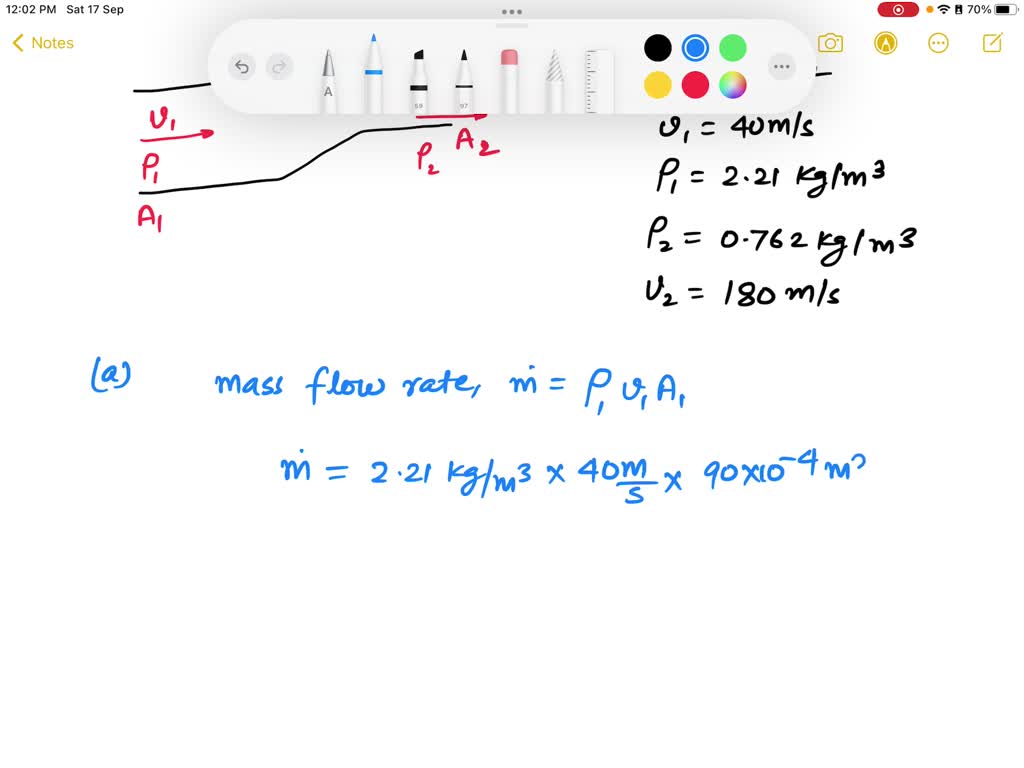 12:02 PM Sat 17 Sep
70%
Notes
A
59
97
υ₁
ρ₁
A₁
ρ₂ A₂
υ₁ = 40m/s
ρ₁ = 2.21 kg/m³
ρ₂ = 0.762 kg/m³
υ₂ = 180 m/s
(a) mass flow rate, ṁ = ρ₁ υ₁ A₁
ṁ = 2.21 kg/m³ × 40 m/s × 90×10⁻⁴ m²